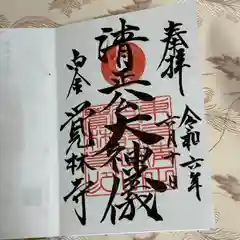 奉拝
令和六年
六月十一日
清正公大神儀
白金
覚林寺